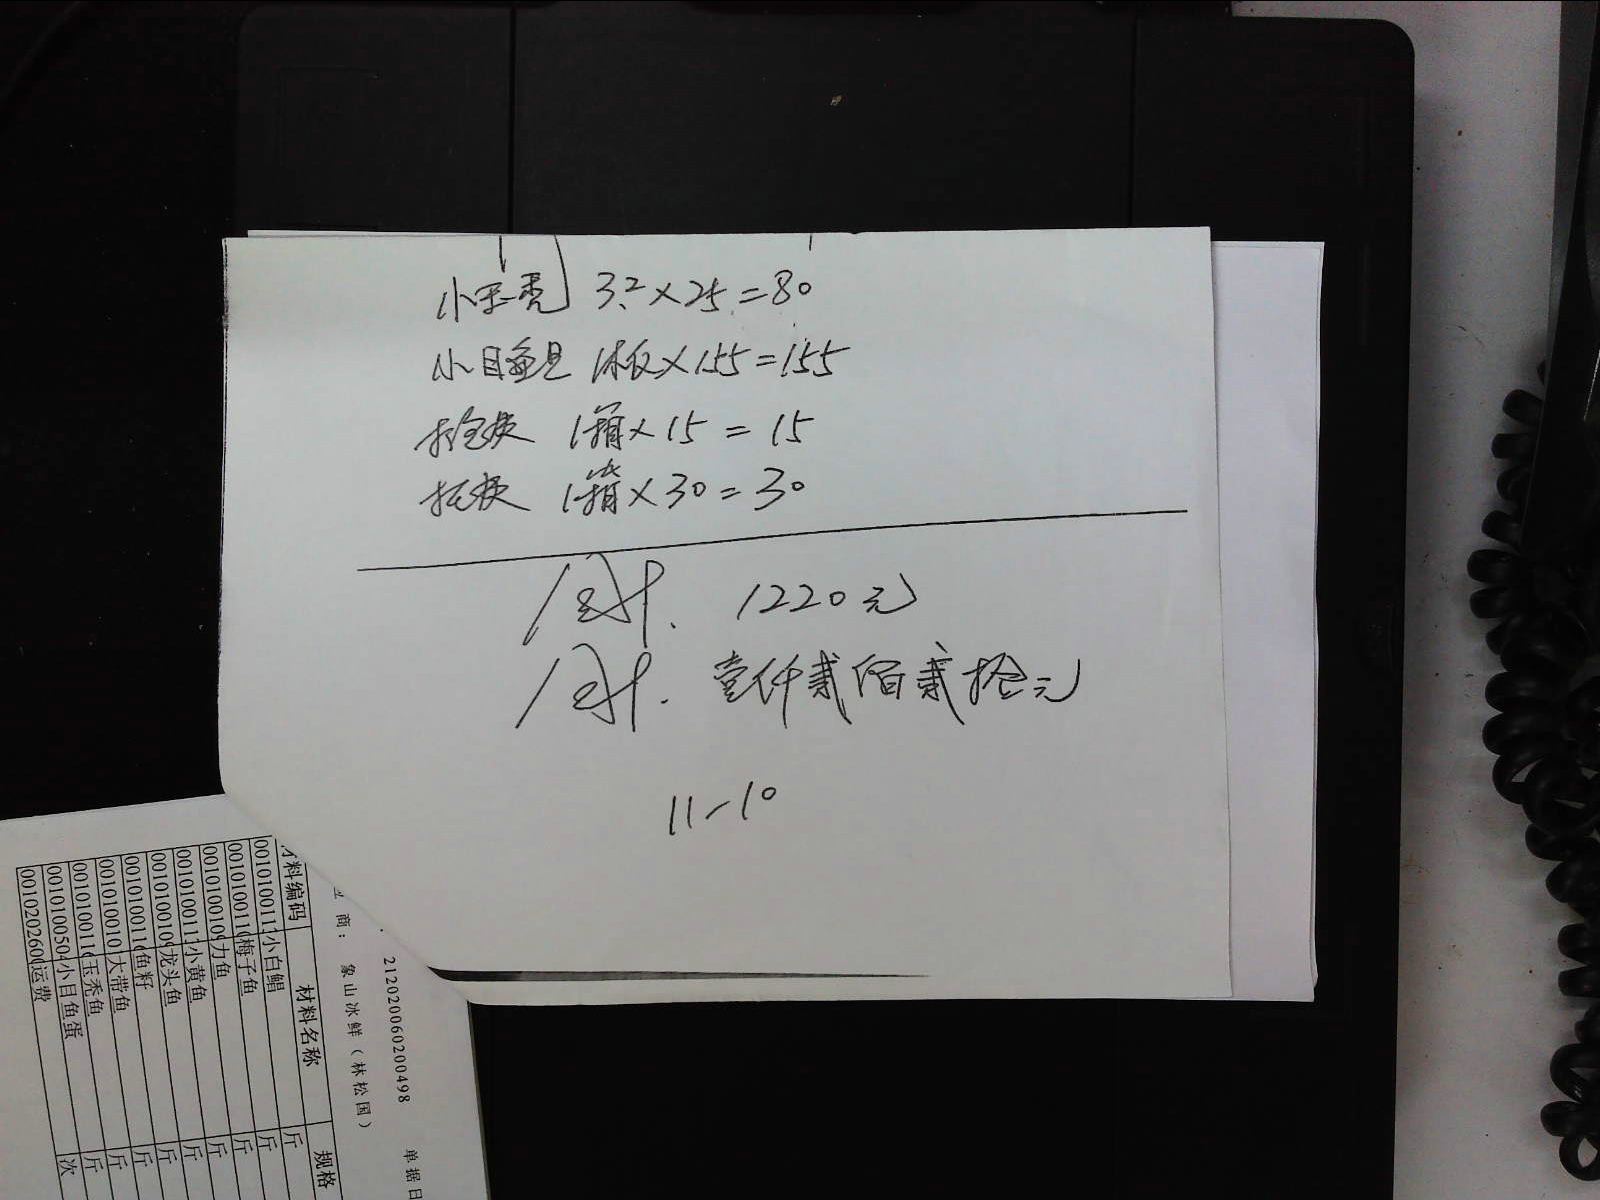 小玉秃 3.2×25=80
小目鱼旦 1板×155=155
1箱×15=15
1箱×30=30
合计. 1220元
合计. 壹仟贰佰贰拾元
11-10
212020060200498 单据日
商: 象山冰鲜(林松国)
材料编码 材料名称 规格
00101001 小白鲳 斤
00101001 梅子鱼 斤
00101001 力鱼 斤
00101001 小黄鱼 斤
00101001 龙头鱼 斤
00101001 鱼籽 斤
00101001 大带鱼 斤
00101001 玉秃鱼 斤
001010050 小目鱼蛋 斤
00102026 运费 次